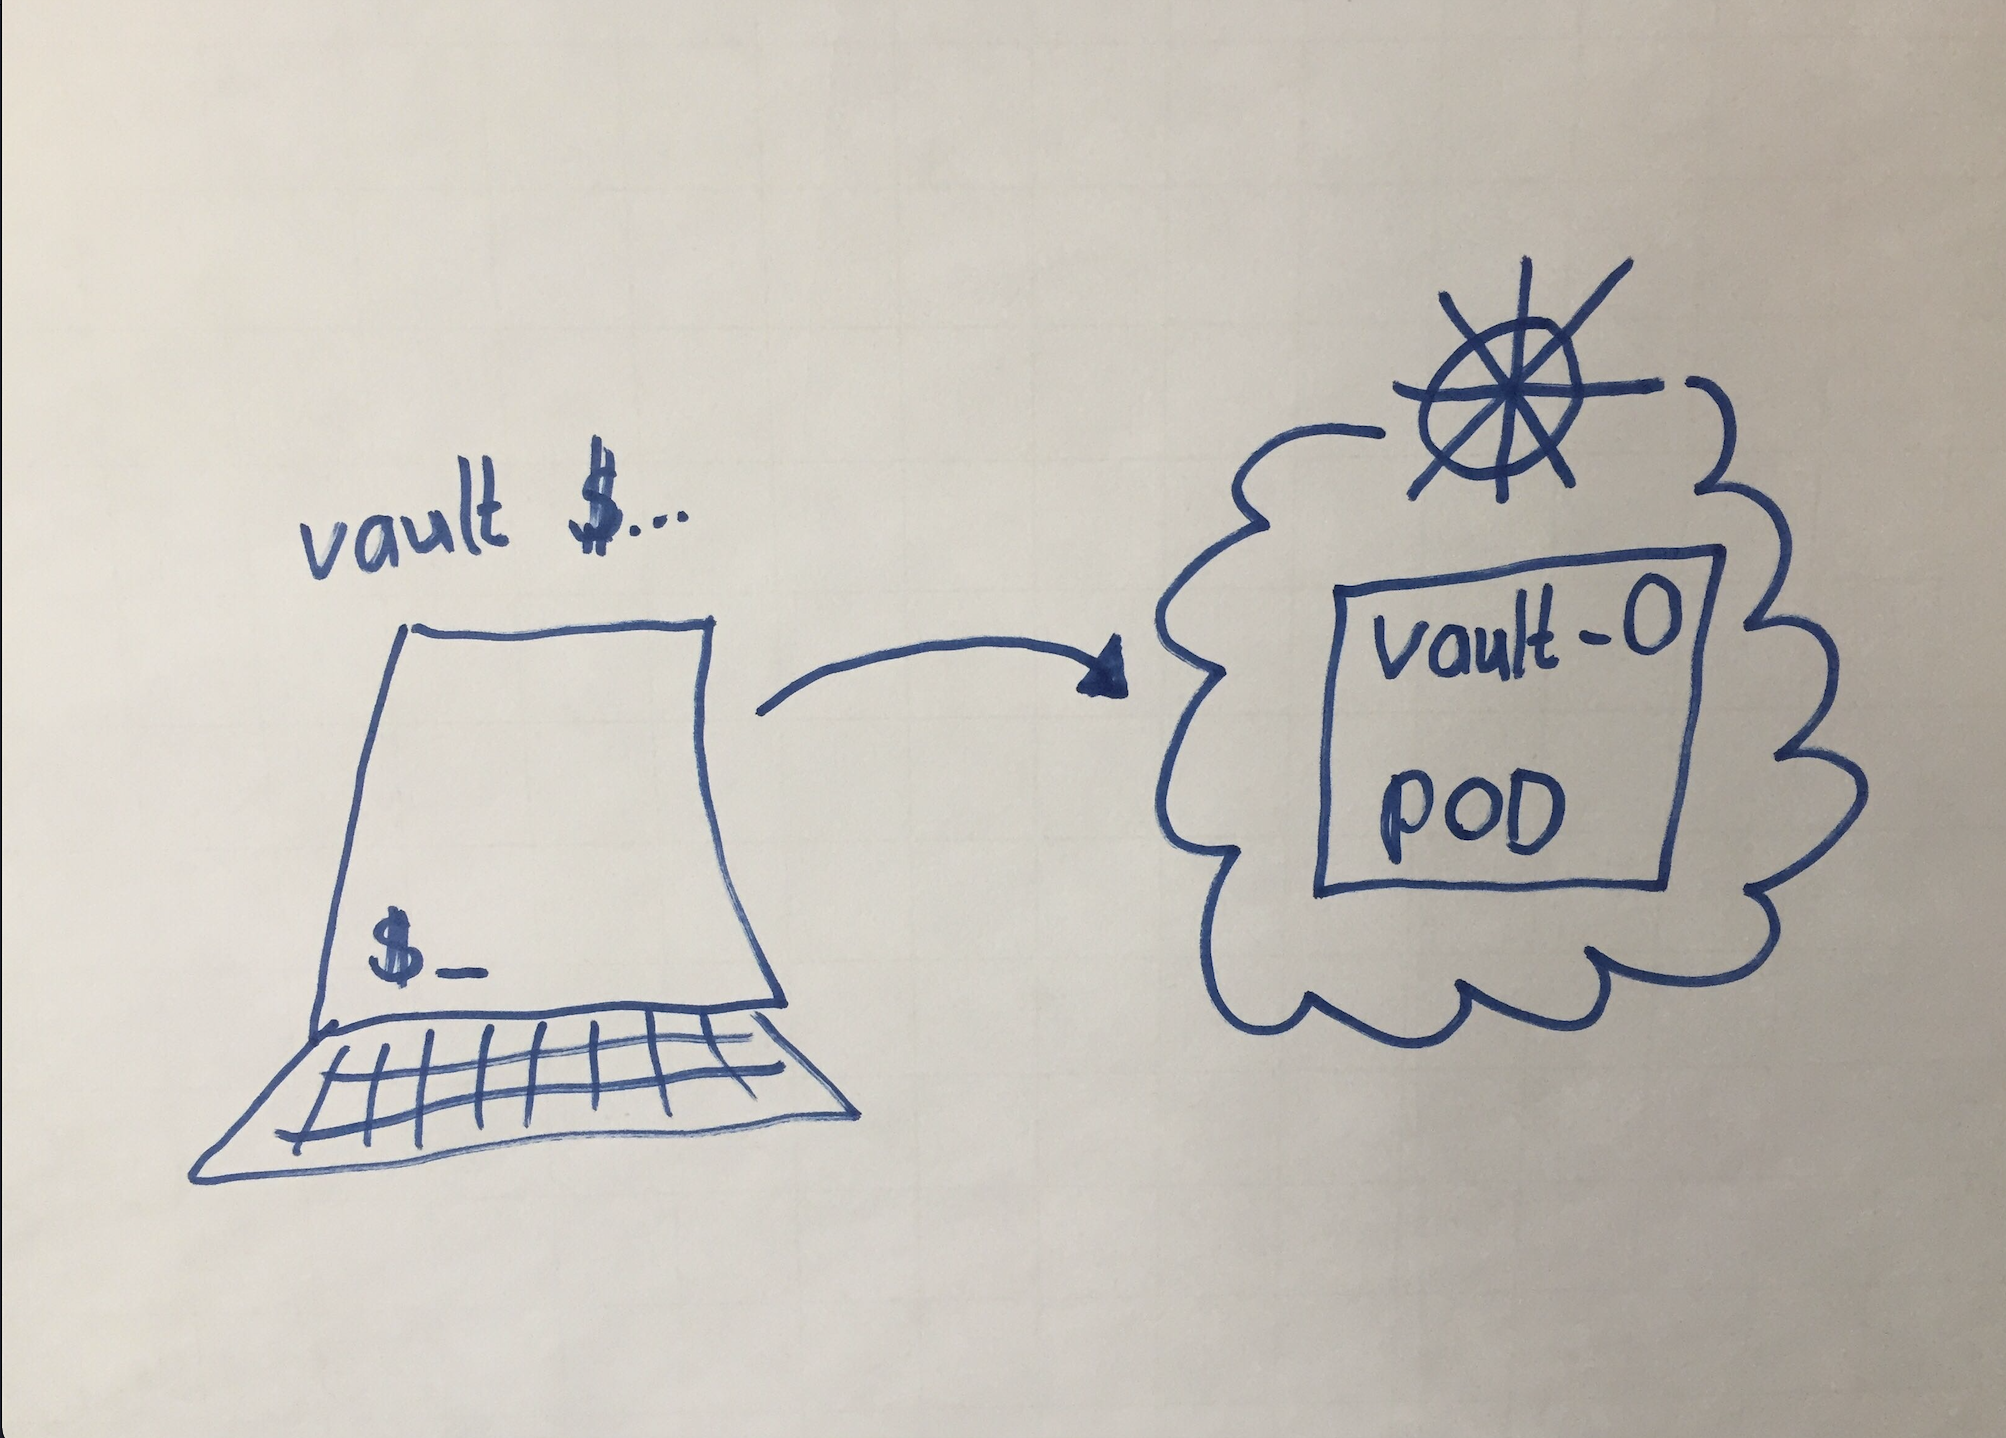 vault $...
$_
vault-0
POD